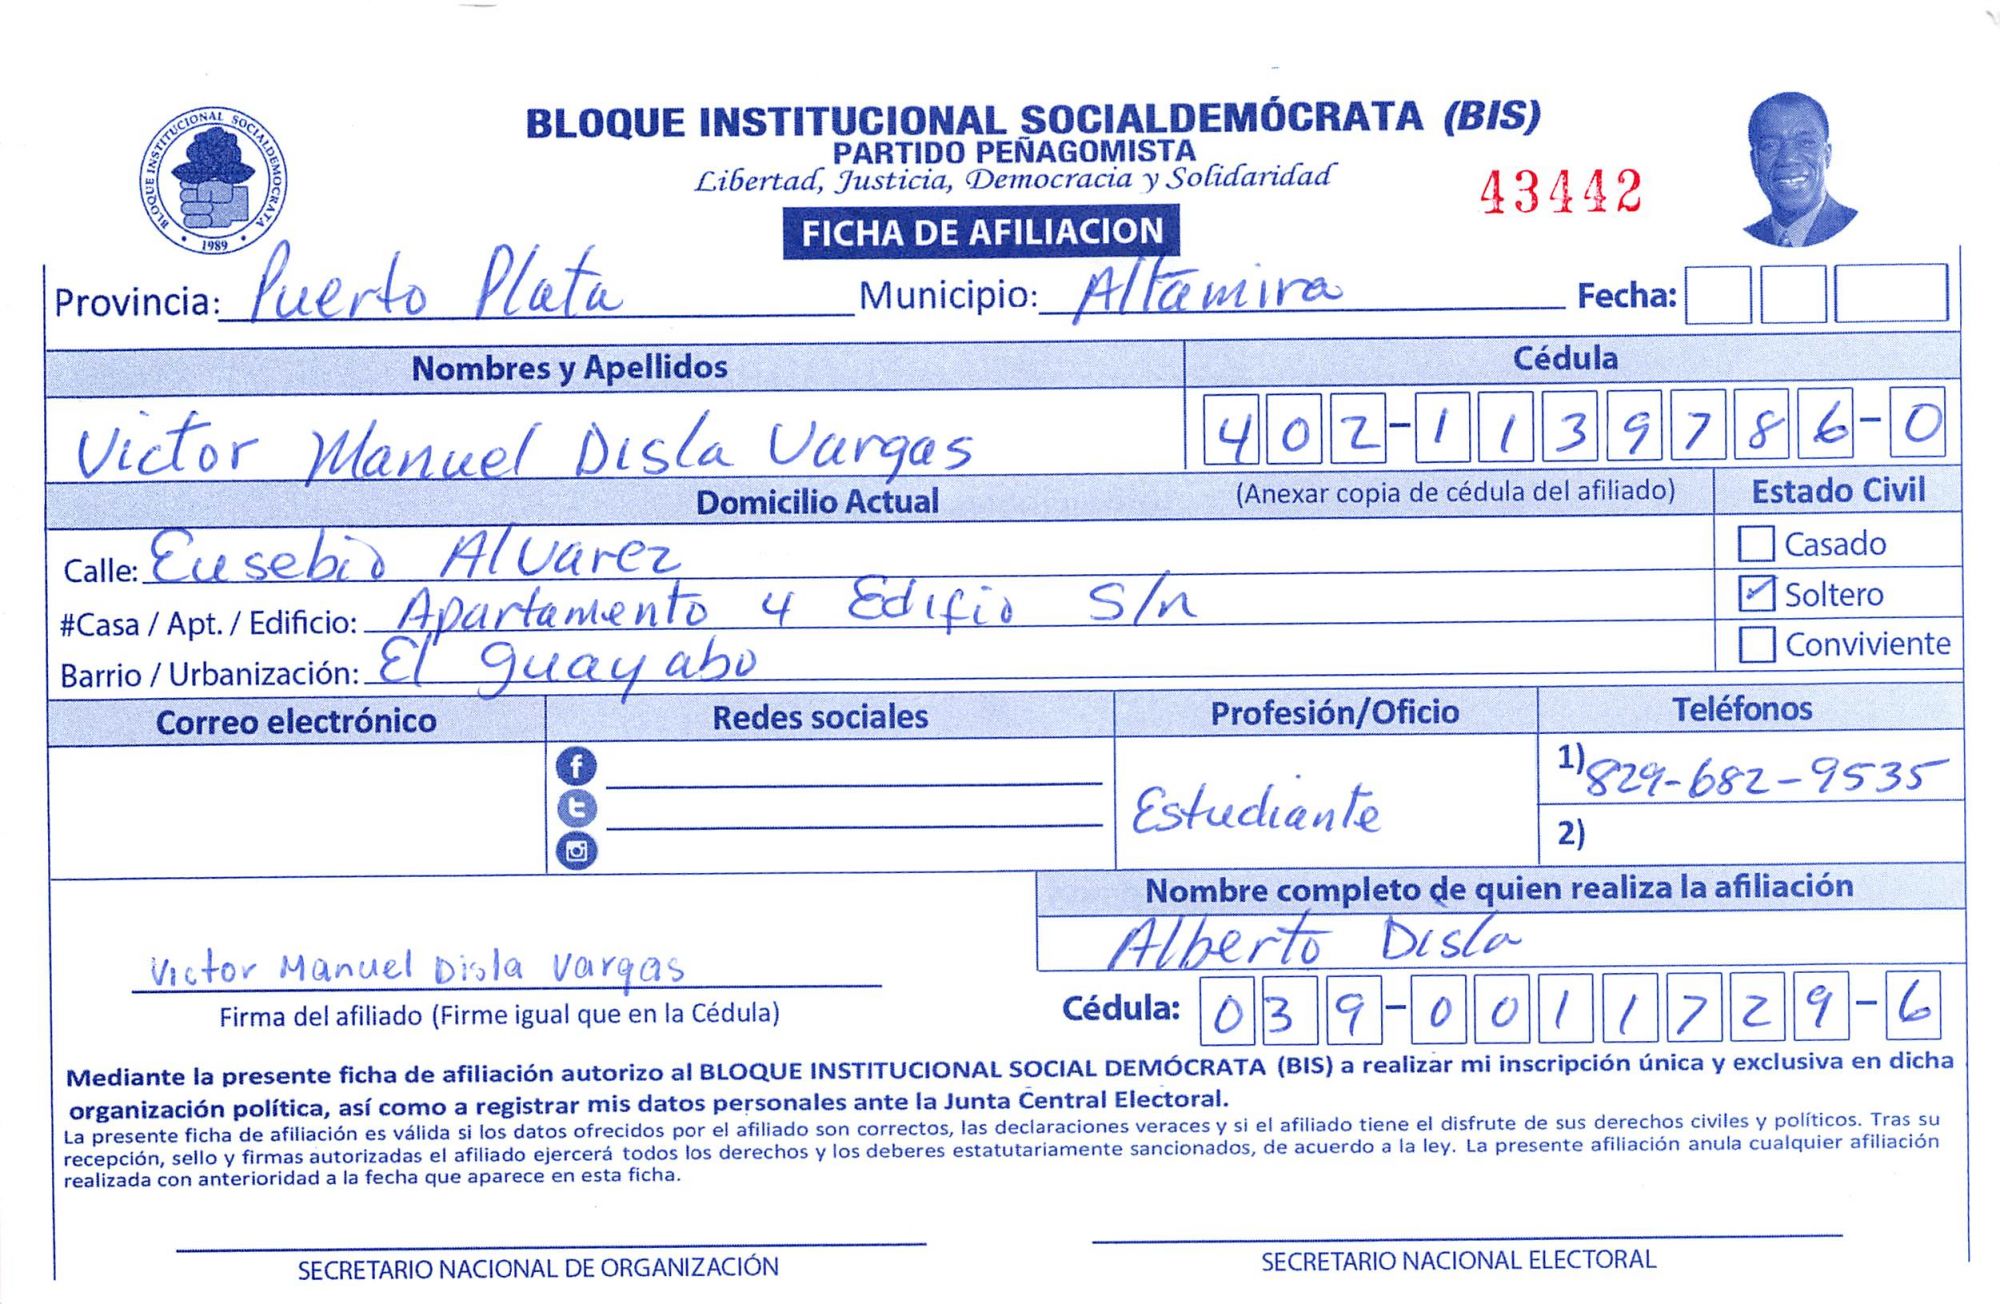 BLOQUE INSTITUCIONAL SOCIALDEMOCRATA
1989
BLOQUE INSTITUCIONAL SOCIALDEMÓCRATA (BIS)
PARTIDO PEÑAGOMISTA
Libertad, Justicia, Democracia y Solidaridad
43442
FICHA DE AFILIACION
Provincia: Puerto Plata Municipio: Altamira Fecha:
Nombres y Apellidos Cédula
Victor Manuel Disla Vargas 402-1139786-0
Domicilio Actual (Anexar copia de cédula del afiliado) Estado Civil
Calle: Eusebio Alvarez Casado
#Casa / Apt. / Edificio: Apartamento 4 Edifio S/n Soltero
Barrio / Urbanización: El guayabo Conviviente
Correo electrónico Redes sociales Profesión/Oficio Teléfonos
1) 829-682-9535
Estudiante
2)
Nombre completo de quien realiza la afiliación
Alberto Disla
Victor Manuel Disla Vargas
Firma del afiliado (Firme igual que en la Cédula) Cédula: 039-0011729-6
Mediante la presente ficha de afiliación autorizo al BLOQUE INSTITUCIONAL SOCIAL DEMÓCRATA (BIS) a realizar mi inscripción única y exclusiva en dicha
organización política, así como a registrar mis datos personales ante la Junta Central Electoral.
La presente ficha de afiliación es válida si los datos ofrecidos por el afiliado son correctos, las declaraciones veraces y si el afiliado tiene el disfrute de sus derechos civiles y políticos. Tras su
recepción, sello y firmas autorizadas el afiliado ejercerá todos los derechos y los deberes estatutariamente sancionados, de acuerdo a la ley. La presente afiliación anula cualquier afiliación
realizada con anterioridad a la fecha que aparece en esta ficha.
SECRETARIO NACIONAL DE ORGANIZACIÓN SECRETARIO NACIONAL ELECTORAL